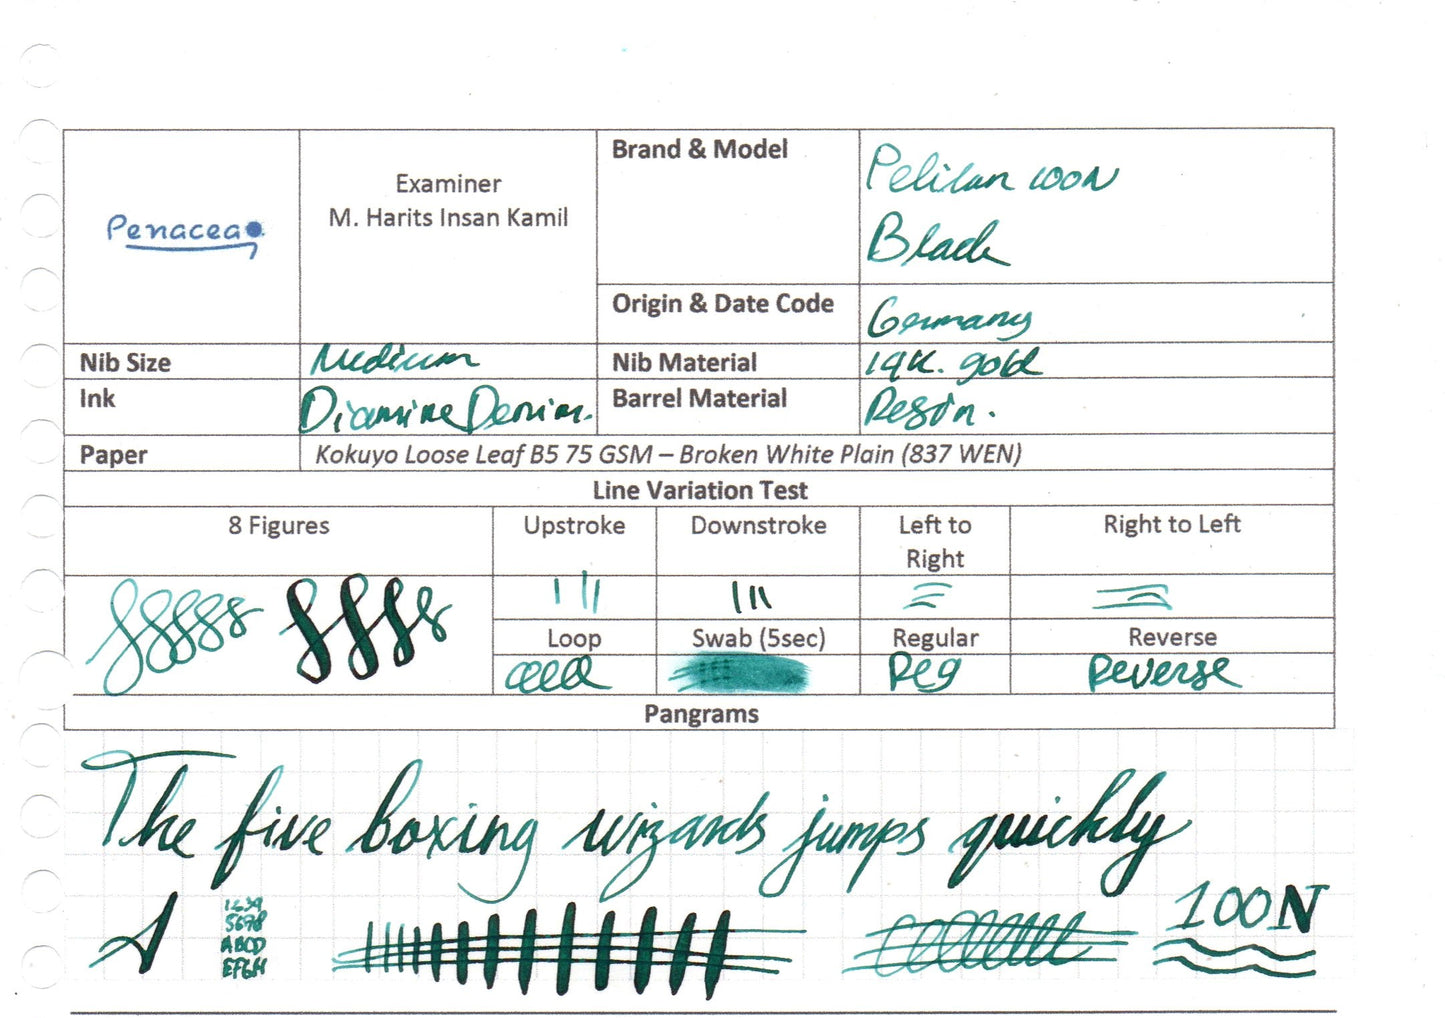 Penacea
Examiner
M. Harits Insan Kamil
Brand & Model
Pelikan 100N
Black
Origin & Date Code
Germany
Nib Size
Medium
Nib Material
14K. gold
Ink
Diamine Denim.
Barrel Material
Resin.
Paper
Kokuyo Loose Leaf B5 75 GSM – Broken White Plain (837 WEN)
Line Variation Test
8 Figures
Upstroke
Downstroke
Left to
Right
Right to Left
Loop
Swab (5sec)
Regular
Reverse
Reg
Reverse
Pangrams
The five boxing wizards jumps quickly
1234
5678
ABCD
EFGH
100N